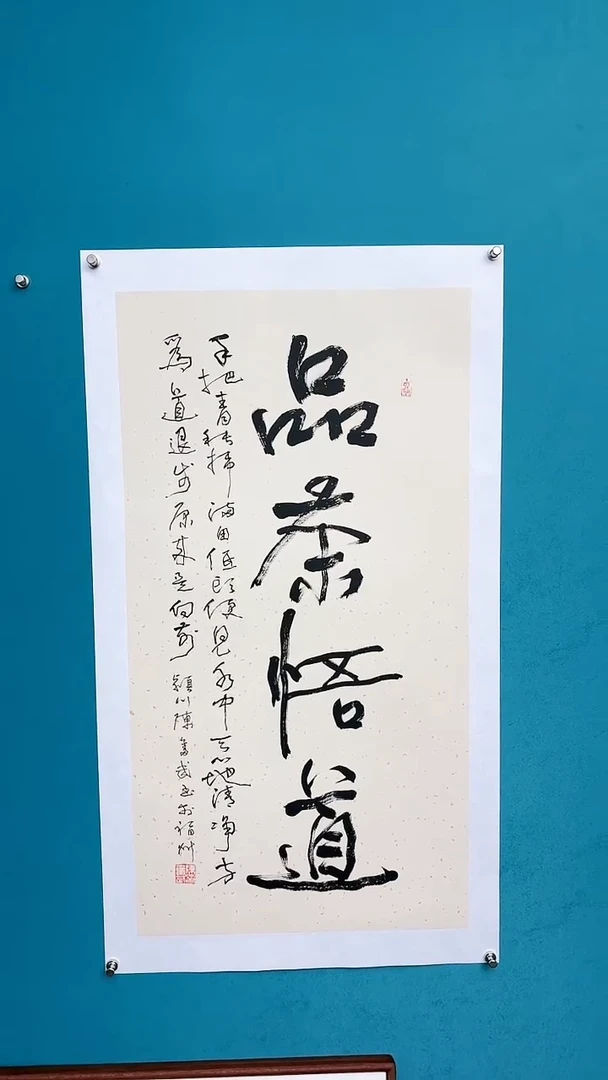 品茶悟道
手把青秧插满田低头便見水中天心地清净方
為道退步原来是向前 穎川陳奮武书於福州